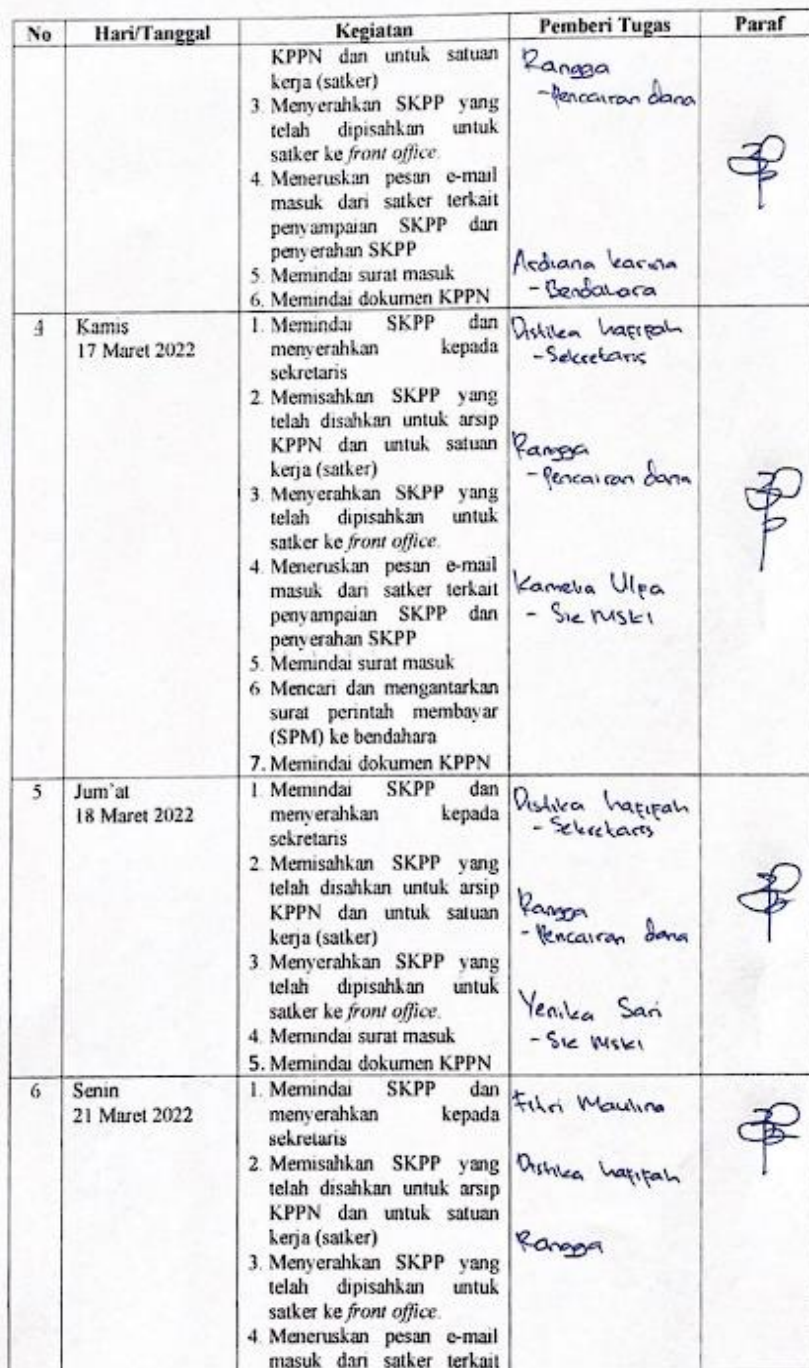 No Hari/Tanggal Kegiatan Pemberi Tugas Paraf
KPPN dan untuk satuan
kerja (satker)
3. Menyerahkan SKPP yang
telah dipisahkan untuk
satker ke front office.
4. Meneruskan pesan e-mail
masuk dari satker terkait
penyampaian SKPP dan
penyerahan SKPP
5. Memindai surat masuk
6. Memindai dokumen KPPN
Rangga
- Pencairan dana
Ardiana karina
- Bendahara
4 Kamis
17 Maret 2022
1. Memindai SKPP dan
menyerahkan kepada
sekretaris
2. Memisahkan SKPP yang
telah disahkan untuk arsip
KPPN dan untuk satuan
kerja (satker)
3. Menyerahkan SKPP yang
telah dipisahkan untuk
satker ke front office.
4. Meneruskan pesan e-mail
masuk dari satker terkait
penyampaian SKPP dan
penyerahan SKPP
5. Memindai surat masuk
6. Mencari dan mengantarkan
surat perintah membayar
(SPM) ke bendahara
7. Memindai dokumen KPPN
Distika hafifah
- Sekretaris
Rangga
- Pencairan dana
Kamelia Ulfa
- Sie MSKI
5 Jum'at
18 Maret 2022
1. Memindai SKPP dan
menyerahkan kepada
sekretaris
2. Memisahkan SKPP yang
telah disahkan untuk arsip
KPPN dan untuk satuan
kerja (satker)
3. Menyerahkan SKPP yang
telah dipisahkan untuk
satker ke front office.
4. Memindai surat masuk
5. Memindai dokumen KPPN
Distika hafifah
- Sekretaris
Rangga
- Pencairan dana
Yenika Sari
- Sie MSKI
6 Senin
21 Maret 2022
1. Memindai SKPP dan
menyerahkan kepada
sekretaris
2. Memisahkan SKPP yang
telah disahkan untuk arsip
KPPN dan untuk satuan
kerja (satker)
3. Menyerahkan SKPP yang
telah dipisahkan untuk
satker ke front office.
4. Meneruskan pesan e-mail
masuk dari satker terkait
Fitri Maulina
Distika hafifah
Rangga